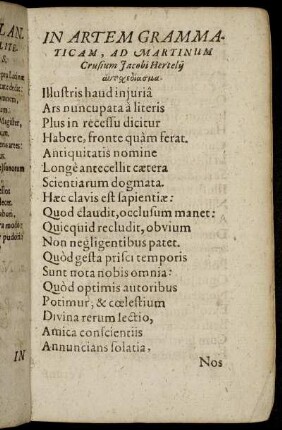 IN ARTEM GRAMMA-
TICAM, AD MARTINUM
Crusium Jacobi Hertelij
αὐτοχεδίασμα.
Illustris haud injuriâ
Ars nuncupata à literis
Plus in recessu dicitur
Habere, fronte quàm ferat.
Antiquitatis nomine
Longè antecellit cætera
Scientiarum dogmata.
Hæc clavis est sapientiæ:
Quod claudit, occlusum manet:
Quicquid recludit, obvium
Non negligentibus patet.
Quòd gesta prisci temporis
Sunt nota nobis omnia:
Quòd optimis autoribus
Potimur, & cœlestium
Divina rerum lectio,
Amica conscientiis
Annuncians solatia.
Nos
IN